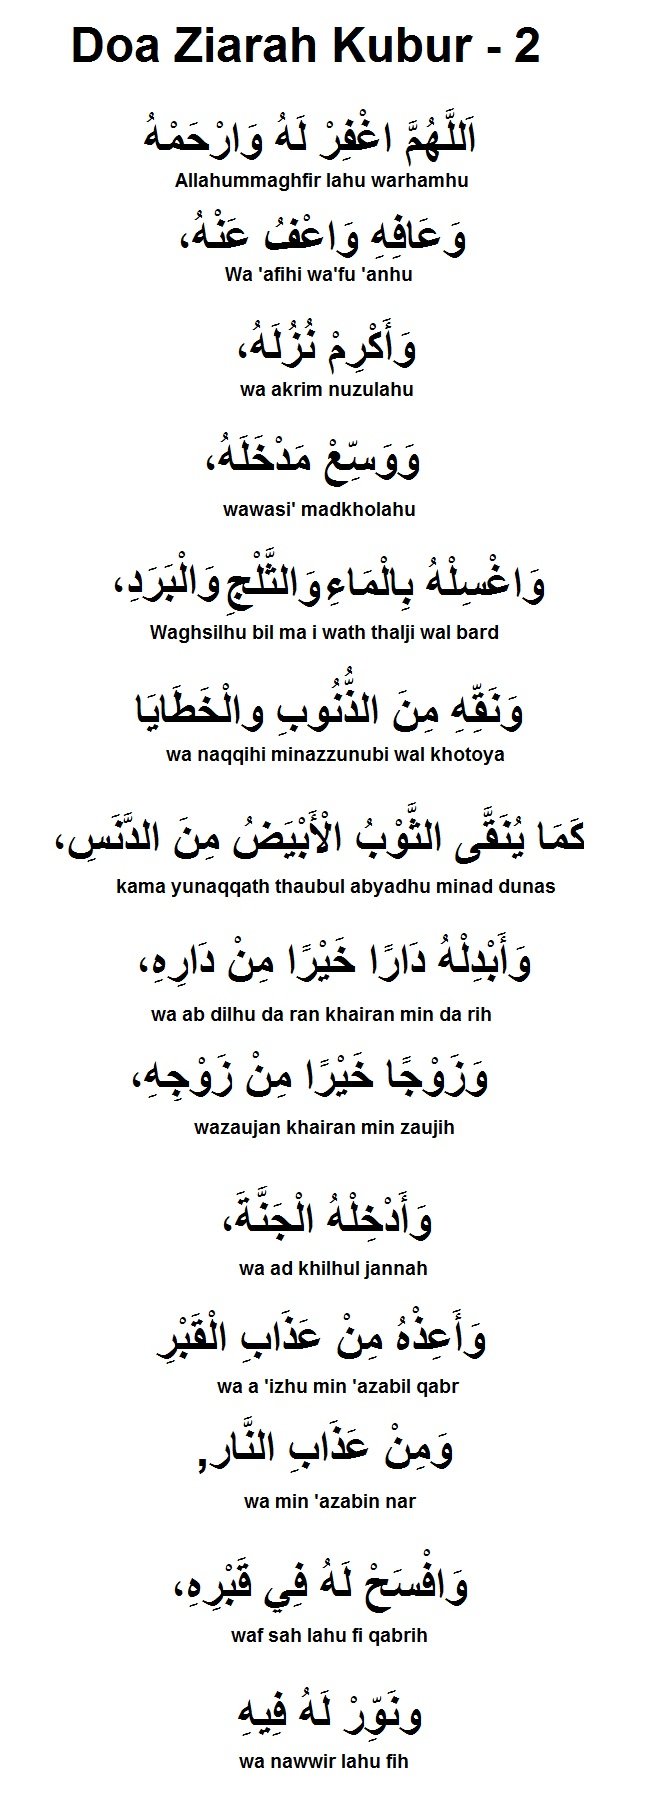 Doa Ziarah Kubur - 2
اَللَّهُمَّ اغْفِرْ لَهُ وَارْحَمْهُ
Allahummaghfir lahu warhamhu
وَعَافِهِ وَاعْفُ عَنْهُ،
Wa 'afihi wa'fu 'anhu
وَأَكْرِمْ نُزُلَهُ،
wa akrim nuzulahu
وَوَسِّعْ مَدْخَلَهُ،
wawasi' madkholahu
وَاغْسِلْهُ بِالْمَاءِ وَالثَّلْجِ وَالْبَرَدِ،
Waghsilhu bil ma i wath thalji wal bard
وَنَقِّهِ مِنَ الذُّنُوبِ والْخَطَايَا
wa naqqihi minazzunubi wal khotoya
كَمَا يُنَقَّى الثَّوْبُ الْأَبْيَضُ مِنَ الدَّنَسِ،
kama yunaqqath thaubul abyadhu minad dunas
وَأَبْدِلْهُ دَارًا خَيْرًا مِنْ دَارِهِ،
wa ab dilhu da ran khairan min da rih
وَزَوْجًا خَيْرًا مِنْ زَوْجِهِ،
wazaujan khairan min zaujih
وَأَدْخِلْهُ الْجَنَّةَ،
wa ad khilhul jannah
وَأَعِذْهُ مِنْ عَذَابِ الْقَبْرِ
wa a 'izhu min 'azabil qabr
وَمِنْ عَذَابِ النَّار,
wa min 'azabin nar
وَافْسَحْ لَهُ فِي قَبْرِهِ،
waf sah lahu fi qabrih
ونَوِّرْ لَهُ فِيهِ
wa nawwir lahu fih